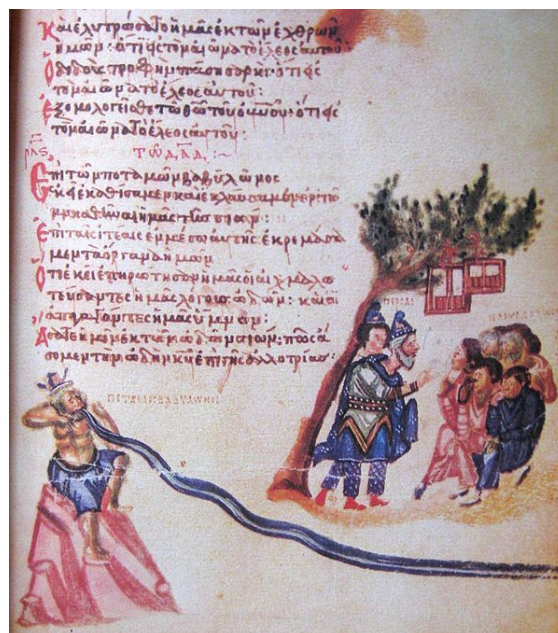 Καὶ ἐλυτρώσατο ἡμᾶς ἐκ τῶν ἐχθρῶν
ἡμῶν: ὅτι εἰς τὸν αἰῶνα τὸ ἔλεος αὐτοῦ
Ὁ διδοὺς τροφὴν πάσῃ σαρκί: ὅτι εἰς
τὸν αἰῶνα τὸ ἔλεος αὐτοῦ:
Ἐξομολογεῖσθε τῷ θῶ τοῦ οὐνοῦ: ὅτι εἰς
τὸν αἰῶνα τὸ ἔλεος αὐτοῦ:
ρλς τῶ δᾱδ:~
Ἐπὶ τῶν ποταμῶν βαβυλῶνος
ἐκεῖ ἐκαθίσαμεν καὶ ἐκλαύσαμεν
ἡμᾶς τῆς σιών:
Ἐπὶ ταῖς ἰτέαις ἐν μέσω αὐτῆς ἐκρεμάσα
μεν τὰ ὄργανα ἡμῶν
Ὅτι ἐκεῖ ἐπηρώτησαν ἡμᾶς οἱ αἰχμαλω
τεύσαντες ἡμᾶς λόγους ὠδῶν: καὶ οἱ
ἀπαγαγόντες ἡμᾶς ὕμνον:
Ἄσατε ἡμῖν ἐκ τῶν ὠδῶν σιών: πῶς ἄ
σομεν τὴν ὠδὴν κῡ ἐπὶ γῆς ἀλλοτρίας: